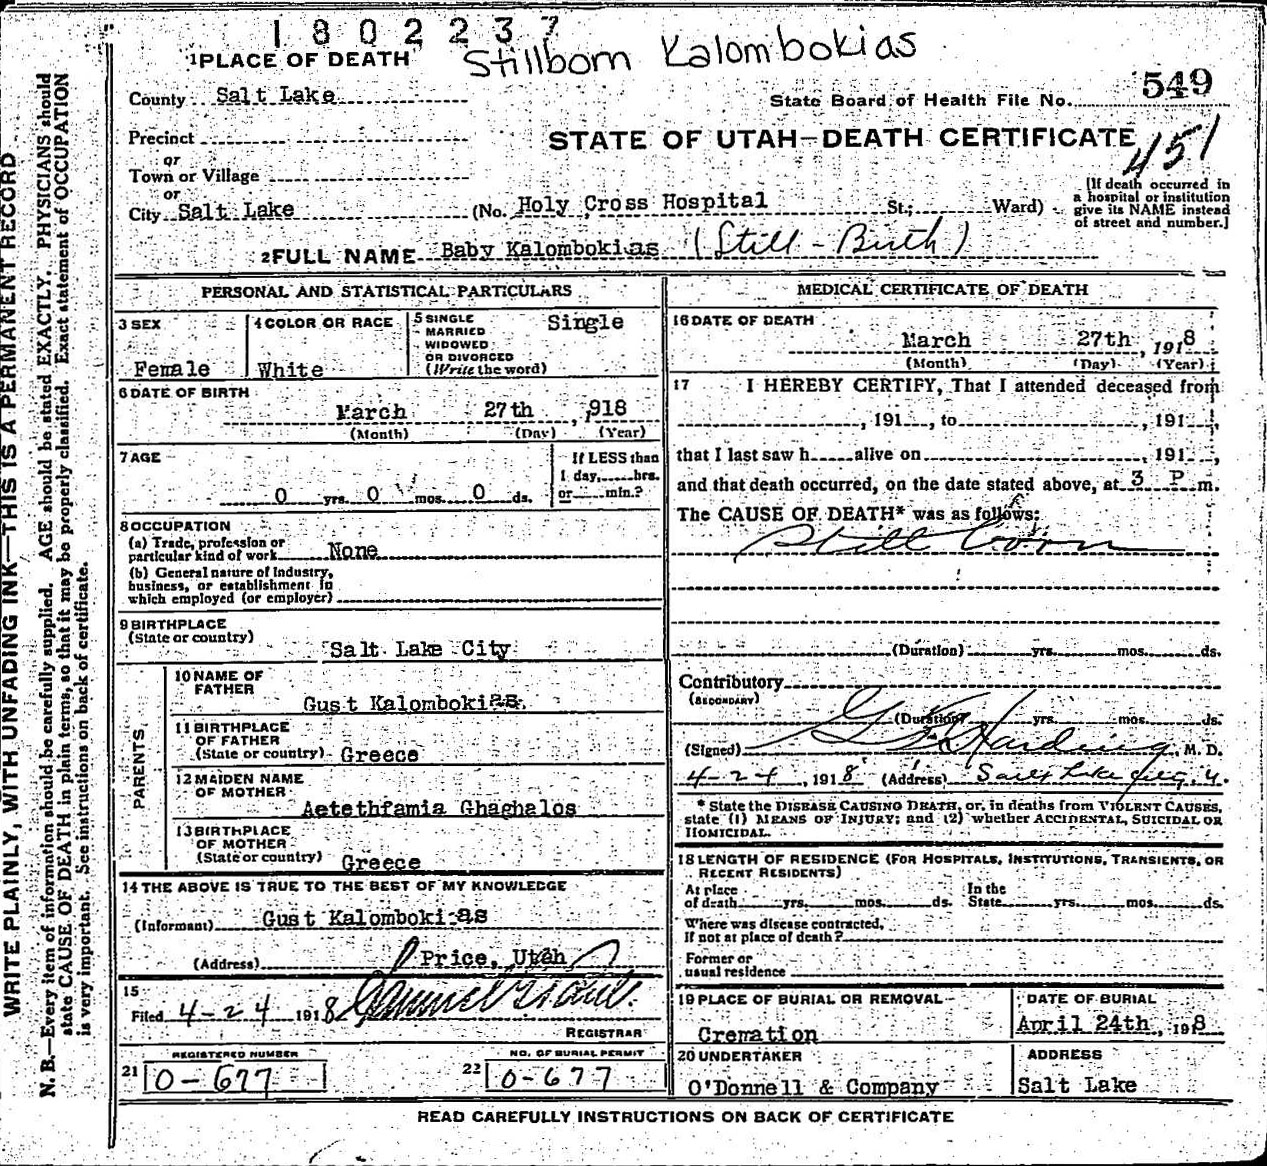 1802237
Stillborn Kalombokias
1 PLACE OF DEATH
County Salt Lake
State Board of Health File No. 549
Precinct
STATE OF UTAH—DEATH CERTIFICATE
451
or
Town or Village
or
City Salt Lake (No. Holy Cross Hospital St.; Ward)
[If death occurred in
a hospital or institution
give its NAME instead
of street and number.]
2 FULL NAME Baby Kalombokias (Still-Birth)
PERSONAL AND STATISTICAL PARTICULARS
3 SEX
Female
4 COLOR OR RACE
White
5 SINGLE
MARRIED
WIDOWED
OR DIVORCED
(Write the word)
Single
6 DATE OF BIRTH
March 27th, 1918
(Month) (Day) (Year)
7 AGE
0 yrs. 0 mos. 0 ds.
If LESS than
1 day, hrs.
or min.?
8 OCCUPATION
(a) Trade, profession or
particular kind of work None
(b) General nature of Industry,
business, or establishment in
which employed (or employer)
9 BIRTHPLACE
(State or country)
Salt Lake City
PARENTS
10 NAME OF
FATHER
Gust Kalombokias.
11 BIRTHPLACE
OF FATHER
(State or country) Greece
12 MAIDEN NAME
OF MOTHER
Aetethfamia Ghaghalos
13 BIRTHPLACE
OF MOTHER
(State or country) Greece
14 THE ABOVE IS TRUE TO THE BEST OF MY KNOWLEDGE
(Informant) Gust Kalombokias
(Address) Price, Utah
15
Filed 4-24 1918
REGISTRAR
REGISTERED NUMBER
21 0-677
NO. OF BURIAL PERMIT
22 0-677
MEDICAL CERTIFICATE OF DEATH
16 DATE OF DEATH
March 27th, 1918
(Month) (Day) (Year)
17 I HEREBY CERTIFY, That I attended deceased from
, 191 , to , 191 ,
that I last saw h alive on , 191 ,
and that death occurred, on the date stated above, at 3 P m.
The CAUSE OF DEATH* was as follows:
Still born
(Duration) yrs. mos. ds.
Contributory
(SECONDARY)
(Duration) yrs. mos. ds.
(Signed) Harding, M. D.
4-24, 1918 (Address) Salt Lake City, U.
* State the DISEASE CAUSING DEATH, or, in deaths from VIOLENT CAUSES,
state (1) MEANS OF INJURY; and (2) whether ACCIDENTAL, SUICIDAL OR
HOMICIDAL.
18 LENGTH OF RESIDENCE (FOR HOSPITALS, INSTITUTIONS, TRANSIENTS, OR
RECENT RESIDENTS)
At place
of death yrs. mos. ds.
In the
State yrs. mos. ds.
Where was disease contracted,
If not at place of death?
Former or
usual residence
19 PLACE OF BURIAL OR REMOVAL
Cremation
DATE OF BURIAL
April 24th, 1918
20 UNDERTAKER
O'Donnell & Company
ADDRESS
Salt Lake
READ CAREFULLY INSTRUCTIONS ON BACK OF CERTIFICATE
WRITE PLAINLY, WITH UNFADING INK—THIS IS A PERMANENT RECORD
N. B.—Every item of information should be carefully supplied. AGE should be stated EXACTLY. PHYSICIANS should
state CAUSE OF DEATH in plain terms, so that it may be properly classified. Exact statement of OCCUPATION
is very important. See instructions on back of certificate.